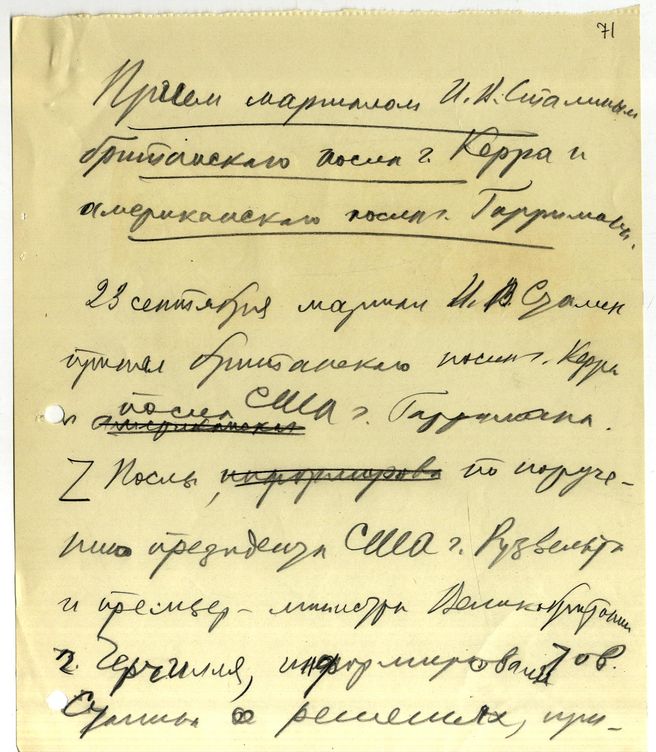 71
Прием маршалом И.В. Сталиным
британского посла г. Керра и
американского посла г. Гарримана.
23 сентября маршал И.В. Сталин
принял британского посла г. Керра
и американская посла США г. Гарримана.
Послы, информирова по поруче-
нию президента США г. Рузвельта
и премьер-министра Великобритании
г. Черчилля, информировали тов.
Сталина о решениях, при-